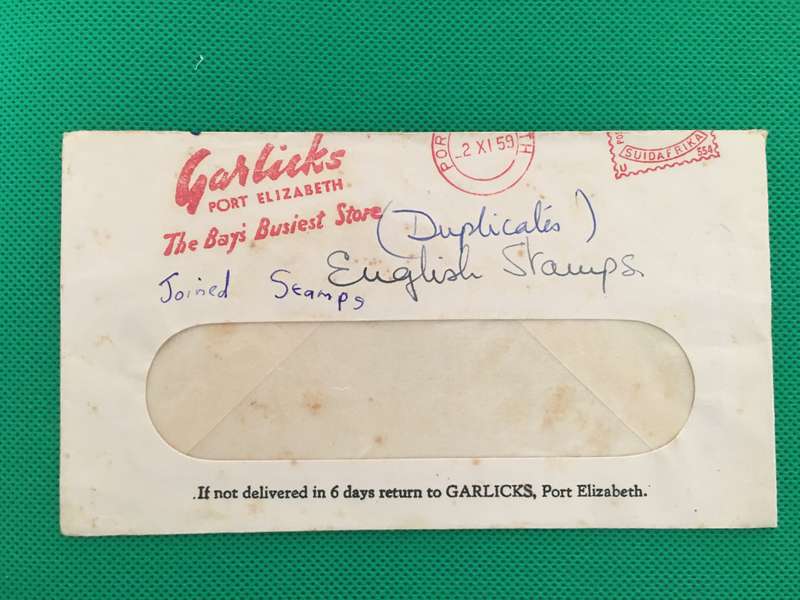 Garlicks
PORT ELIZABETH
The Bay's Busiest Store
POR
2 XI 59
TH
SUIDAFRIKA
554
(Duplicates)
English Stamps
Joined Stamps
If not delivered in 6 days return to GARLICKS, Port Elizabeth.